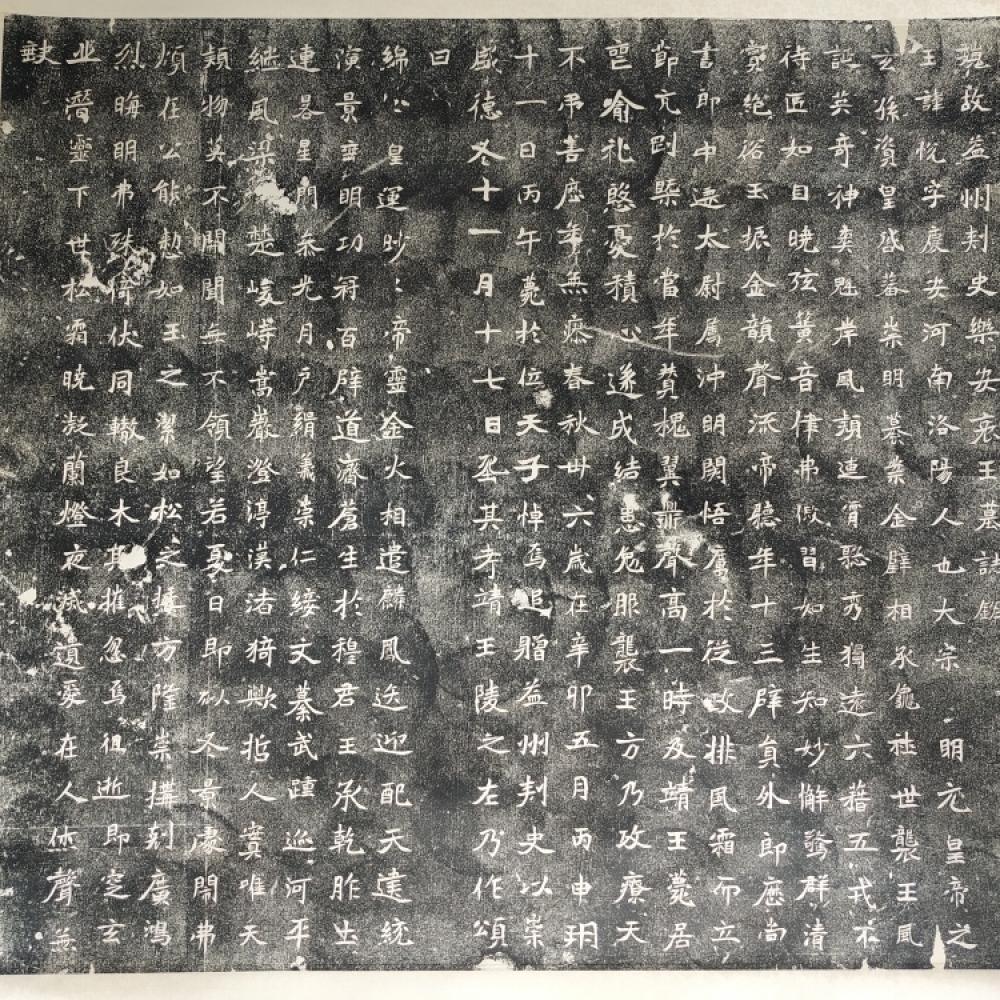 魏故益州刾史樂安哀王墓誌銘
王諱悅字慶安河南洛陽人也大宗明元皇帝之
玄孫資皇盛蕃崇明慕業金辟相承龜社世襲王風
誕英奇神爽魁岸風韻連霄聡秀獨遠六藉五戎不
待匠如目曉弦簧音律弗假習如生知妙懈發群清
賞絕俗玉振金韻聲流帝聽年十三辟員外郎應尚
書郎中遷太尉属沖明開悟廌於從政排風霜而立
節亢剛槩於當年贊槐翼鼎聲高一時及靖王薨居
喪喻礼慜憂積心遂成結患危服襲王方乃攻療天
不弔善應年無瘳春秋卅六歲在辛卯五月丙申玥
十一日丙午薨於位天子悼焉追贈益州刾史以崇
盛德冬十一月十七日丕其考靖王陵之左乃作頌
曰
綿〻皇運眇〻帝靈金火相遣麟鳳迭迎配天達統
演景齊明功冠百辟道濟蒼生於穆君王承乾胙出
連暑星門叅光月戶緝義崇仁綏文纂武踵巡河平
継風梁楚峻峙嵩巖澄渟漢渚猗歟哲人寔唯天
類物莫不開聞無不領望若夏日即似冬景處閙弗
煩在公能懃如王之潔如松之操方隆崇搆刻廣鴻
烈晦明弗殊倚伏同轍良木其摧忽焉徂逝即窆玄
埊潛靈下世松霜曉凝蘭燈夜滅遺愛在人休聲無
缺